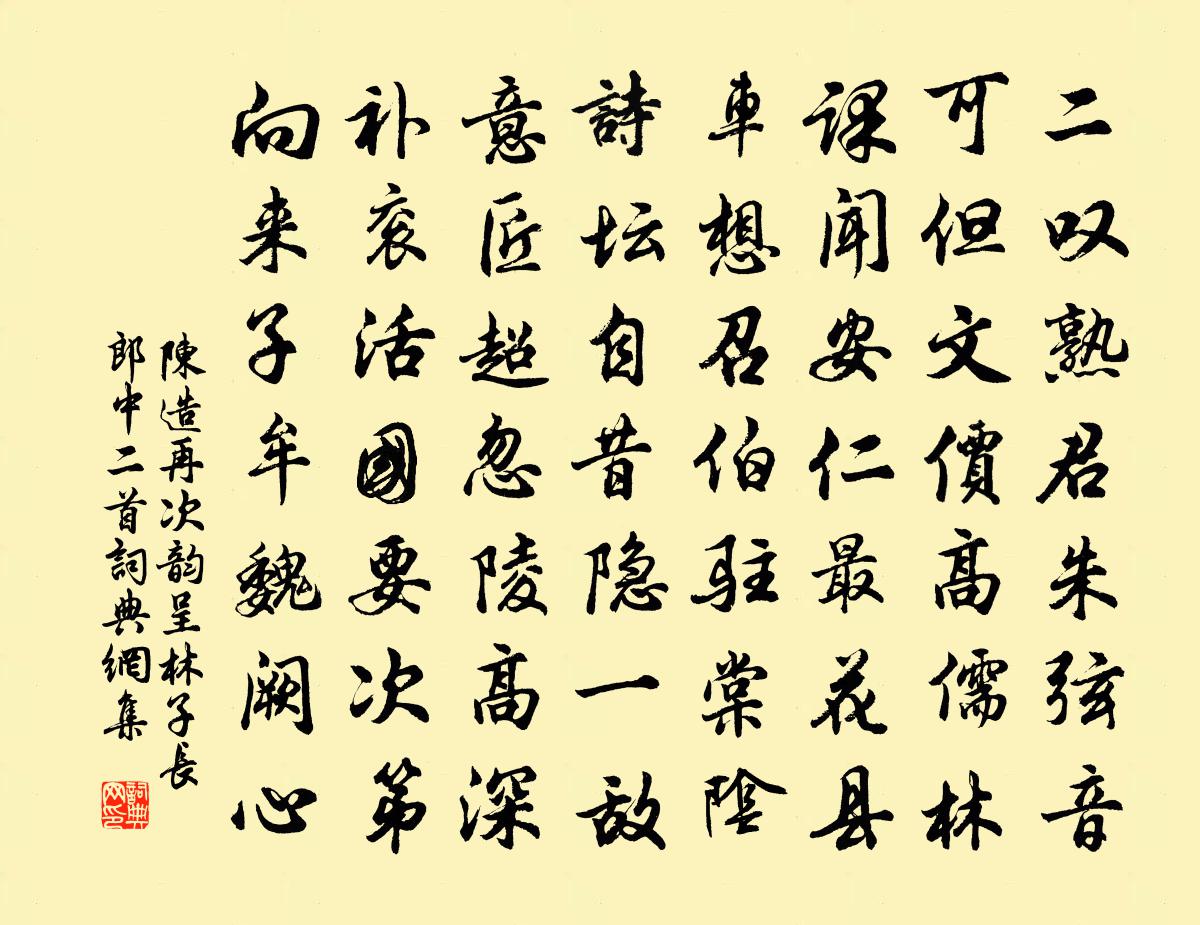 二叹熟君朱弦音
可但文價高儒林
課闻安仁最花县
車想召伯駐棠陰
詩坛自昔隐一敌
意匠超忽陵高深
补衮活國要次第
向来子牟魏阙心
陳造再次韵呈林子長
郎中二首詞典網集
詞典
网印